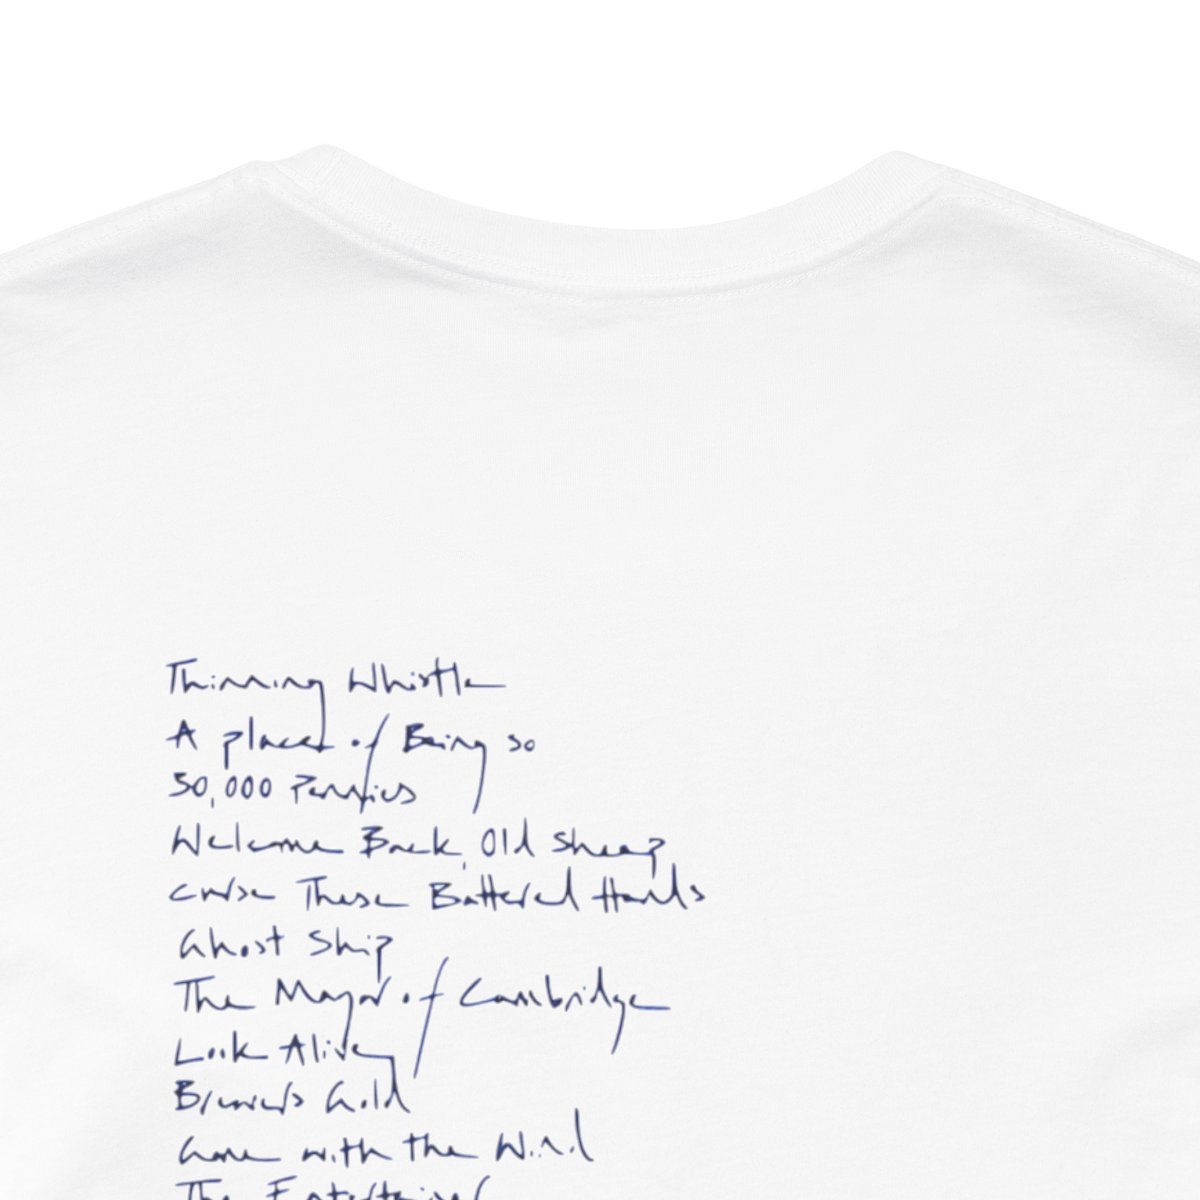 Thinning Whistle
A place of Being so
50,000 Pennies
Welcome Back, Old Sheep
Curse These Battered Hands
Ghost Ship
The Mayor of Cambridge
Look Alive
Brewer's Gold
Gone with the Wind
The Entertainer